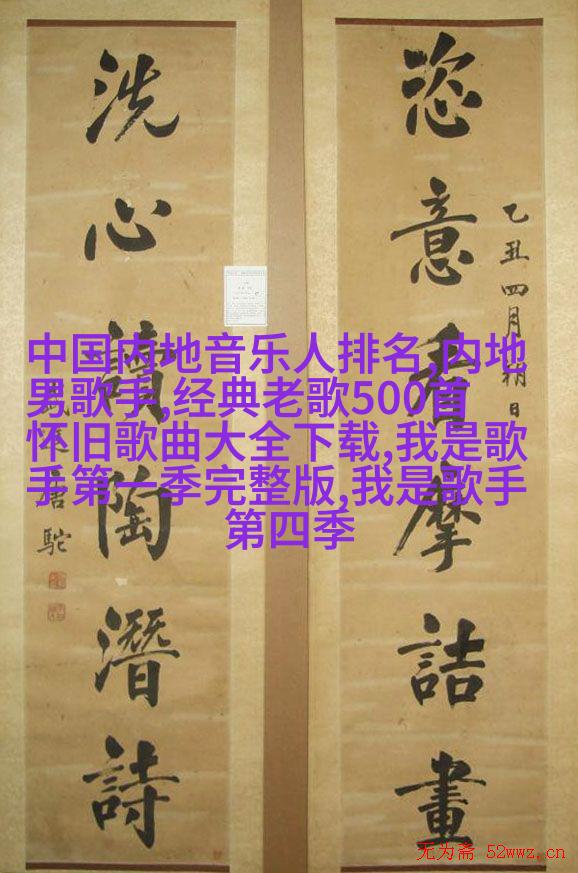 恣意看摩詰畫
乙丑四月朔日
洗心讀陶潛詩
唐駝
中国内地音乐人排名,内地
男歌手,经典老歌500首
怀旧歌曲大全下载,我是歌
手第一季完整版,我是歌手
第四季
无为斋 52wwz.cn